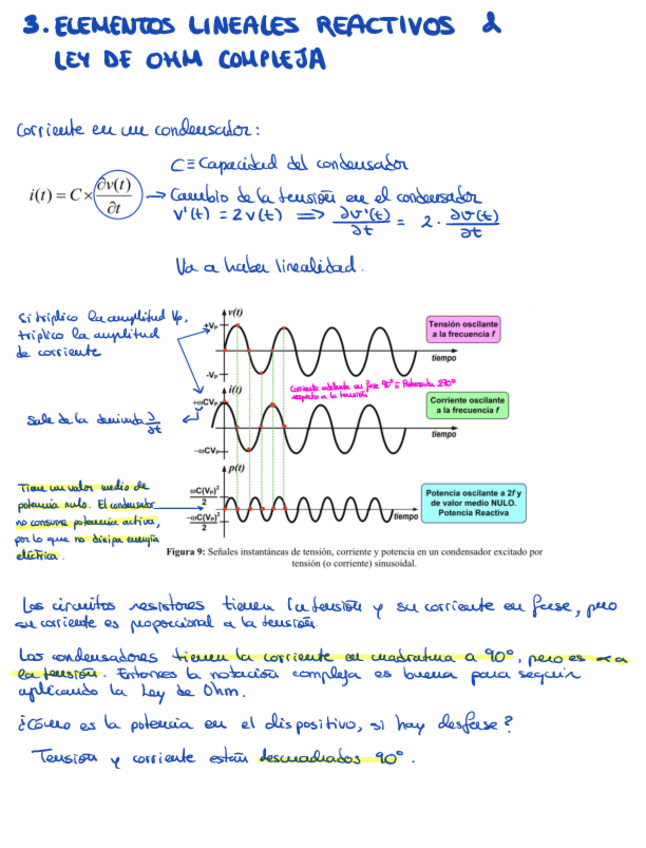 3. ELEMENTOS LINEALES REACTIVOS &
LEY DE OHM COMPLEJA
Corriente en un condensador:
C ≡ Capacidad del condensador
i(t) = C × ∂v(t)/∂t → Cambio de la tensión en el condensador
v'(t) = 2v(t) ⇒ ∂v'(t)/∂t = 2 · ∂v(t)/∂t
Va a haber linealidad.
Si triplico la amplitud Vp,
triplico la amplitud
de corriente
Sale de la derivada ∂/∂t
Tiene un valor medio de
potencia nulo. El condensador
no consume potencia activa,
por lo que no disipa energía
eléctrica.
v(t)
+Vₚ
-Vₚ
tiempo
Tensión oscilante
a la frecuencia f
i(t)
Corriente adelanta en fase 90° = Retrasada 270°
respecto a la tensión
+ωCVₚ
-ωCVₚ
tiempo
Corriente oscilante
a la frecuencia f
p(t)
ωC(Vₚ)²/2
-ωC(Vₚ)²/2
tiempo
Potencia oscilante a 2f y
de valor medio NULO.
Potencia Reactiva
Figura 9: Señales instantáneas de tensión, corriente y potencia en un condensador excitado por
tensión (o corriente) sinusoidal.
Los circuitos resistores tienen la tensión y su corriente en fase, pero
su corriente es proporcional a la tensión.
Los condensadores tienen la corriente en cuadratura a 90°, pero es ∝ a
la tensión. Entonces la notación compleja es buena para seguir
aplicando la Ley de Ohm.
¿Cómo es la potencia en el dispositivo, si hay desfase?
Tensión y corriente están descuadrados 90°.